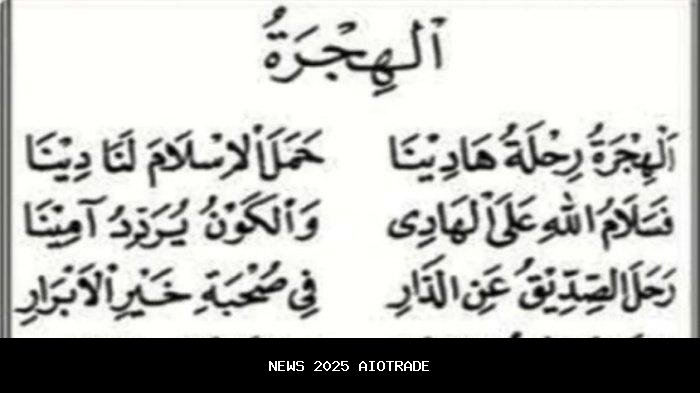 اَلْهِجْرَةُ
اَلْهِجْرَةُ رِحْلَةُ هَادِيْنَا حَمَلَ اْلاِسْلاَمَ لَنَا دِيْنَا
فَسَلاَمُ اللهِ عَلَى اْلهَادِى وَاْلكَوْنُ يُرَدِّدُ آمِيْنَا
رَحَلَ الصِّدِّيْقُ عَنِ الدَّارِ فِي صُحْبَةِ خَيْرِ اْلاَبْرَارِ
NEWS 2025 AIOTRADE